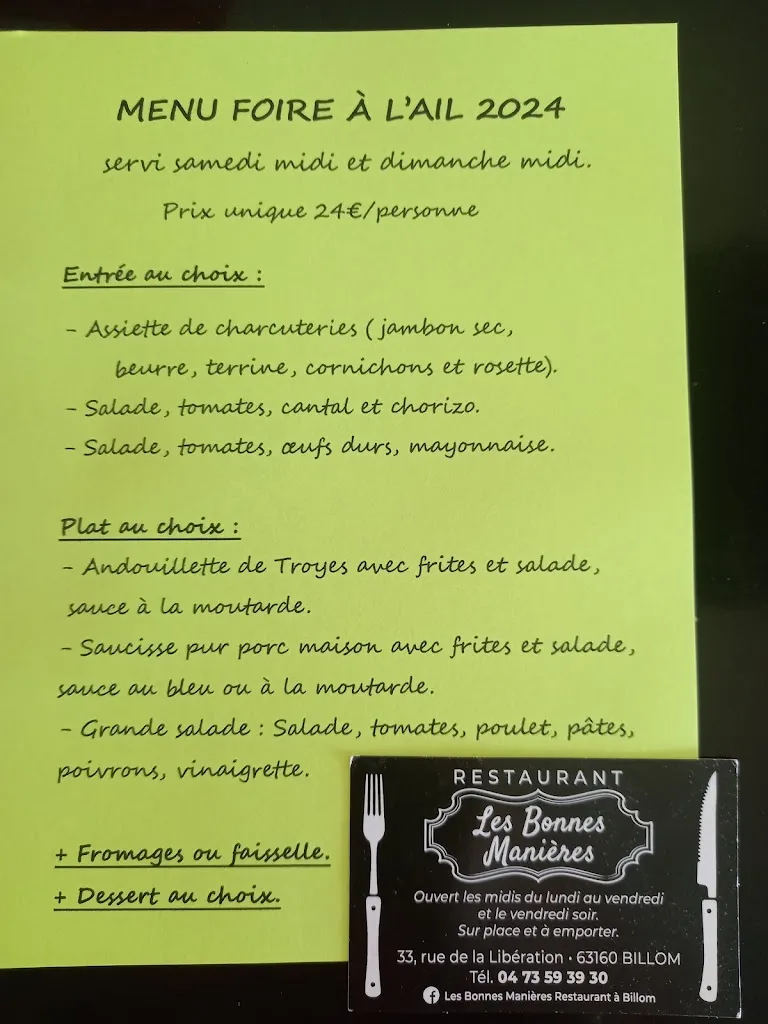 MENU FOIRE À L'AIL 2024
servi samedi midi et dimanche midi.
Prix unique 24€/personne
Entrée au choix :
- Assiette de charcuteries ( jambon sec,
beurre, terrine, cornichons et rosette).
- Salade, tomates, cantal et chorizo.
- Salade, tomates, œufs durs, mayonnaise.
Plat au choix :
- Andouillette de Troyes avec frites et salade,
sauce à la moutarde.
- Saucisse pur porc maison avec frites et salade,
sauce au bleu ou à la moutarde.
- Grande salade : Salade, tomates, poulet, pâtes,
poivrons, vinaigrette.
+ Fromages ou faisselle.
+ Dessert au choix.
RESTAURANT
Les Bonnes
Manières
Ouvert les midis du lundi au vendredi
et le vendredi soir.
Sur place et à emporter.
33, rue de la Libération · 63160 BILLOM
Tél. 04 73 59 39 30
Les Bonnes Manières Restaurant à Billom